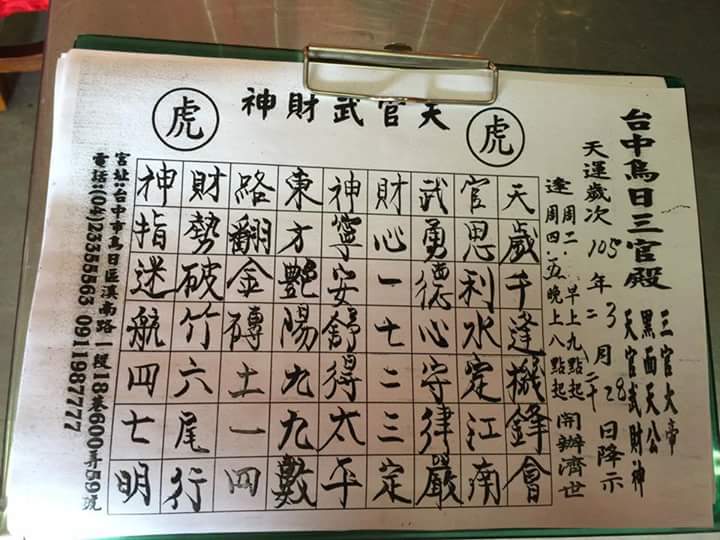 台中烏日三官殿
三官大帝
黑面天公
天官武財神
天運歲次 105年二 3月二十 28日降示
逢周二.早上九點起
周四.五晚上八點起
開辦濟世
虎
天官武財神
虎
天歲千逢機鋒會
官思利水定江南
武勇德心守律嚴
財心一七二三定
神寧安舒得太平
東方艷陽九九數
路翻金磚土一四
財勢破竹六尾行
神指迷航四七明
宮址:台中市烏日區溪南路一段18巷600弄59號
電話:(04)23355563 0911987777